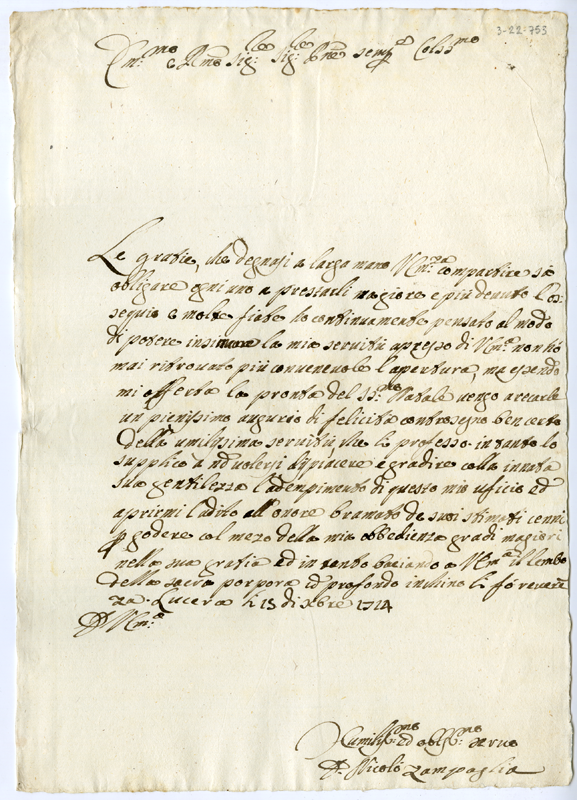 3-22-753
Em:mo e Rmo Sig:re Sig:re Pne semp:e Colss:mo
Le gratie, che degnasi a larga mano V Em:za compartire si è
obligare ogniuno a prestarli magiore e più devuto l'os:
sequio e molte fiate hò continuamente pensato al modo
di potere insinuare la mia servitù apresso di V Em:a non hò
mai ritrovato più convenevole l'apertura, ma essendo
mi offerta la pronta del SS:mo Natale vengo a recarle
un pienissimo augurio di felicità contrasegno ben certo
della umilissima servitù che li professo in tanto la
supplico a nō volersi dispiacere e gradire colla innata
sua gentilezza l'adempimento di questo mio uficio ed
aprirmi l'adito all'onore bramato de suoi stimati cenni
p godere col mezo della mia obbedienza gradi magiori
nella sua gratia ed in tanto baciando a V Em:a il lembo
della sacra porpora cō profondo inchino li fò reveren
za. Lucera li 15 di Xbre 1714
D V Em:a
Humiliss:mo ed oblig:mo servo
D. Nicolò Zampaglia